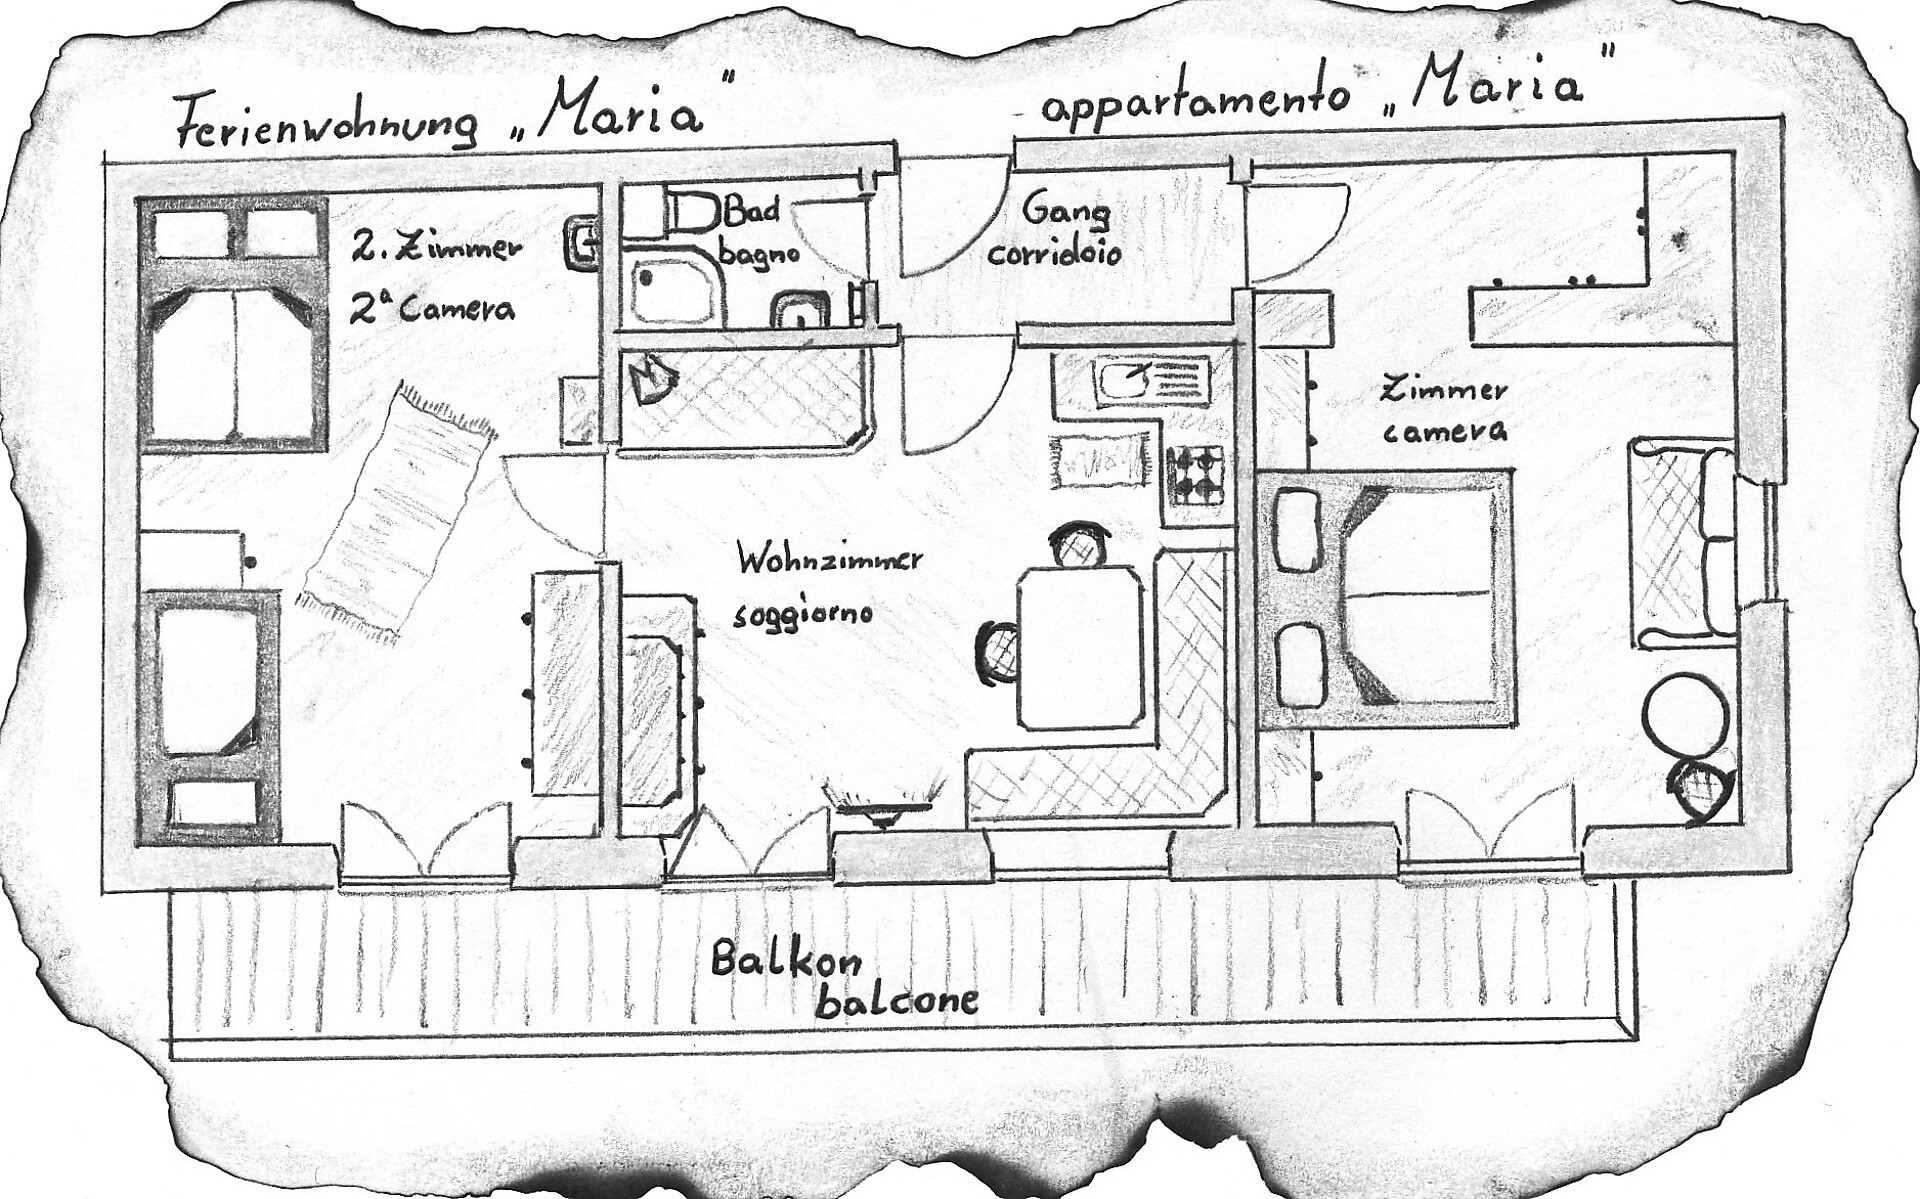 Ferienwohnung „Maria"
appartamento „Maria"
2. Zimmer
2ª Camera
Bad
bagno
Gang
corridoio
Zimmer
camera
Wohnzimmer
soggiorno
Balkon
balcone